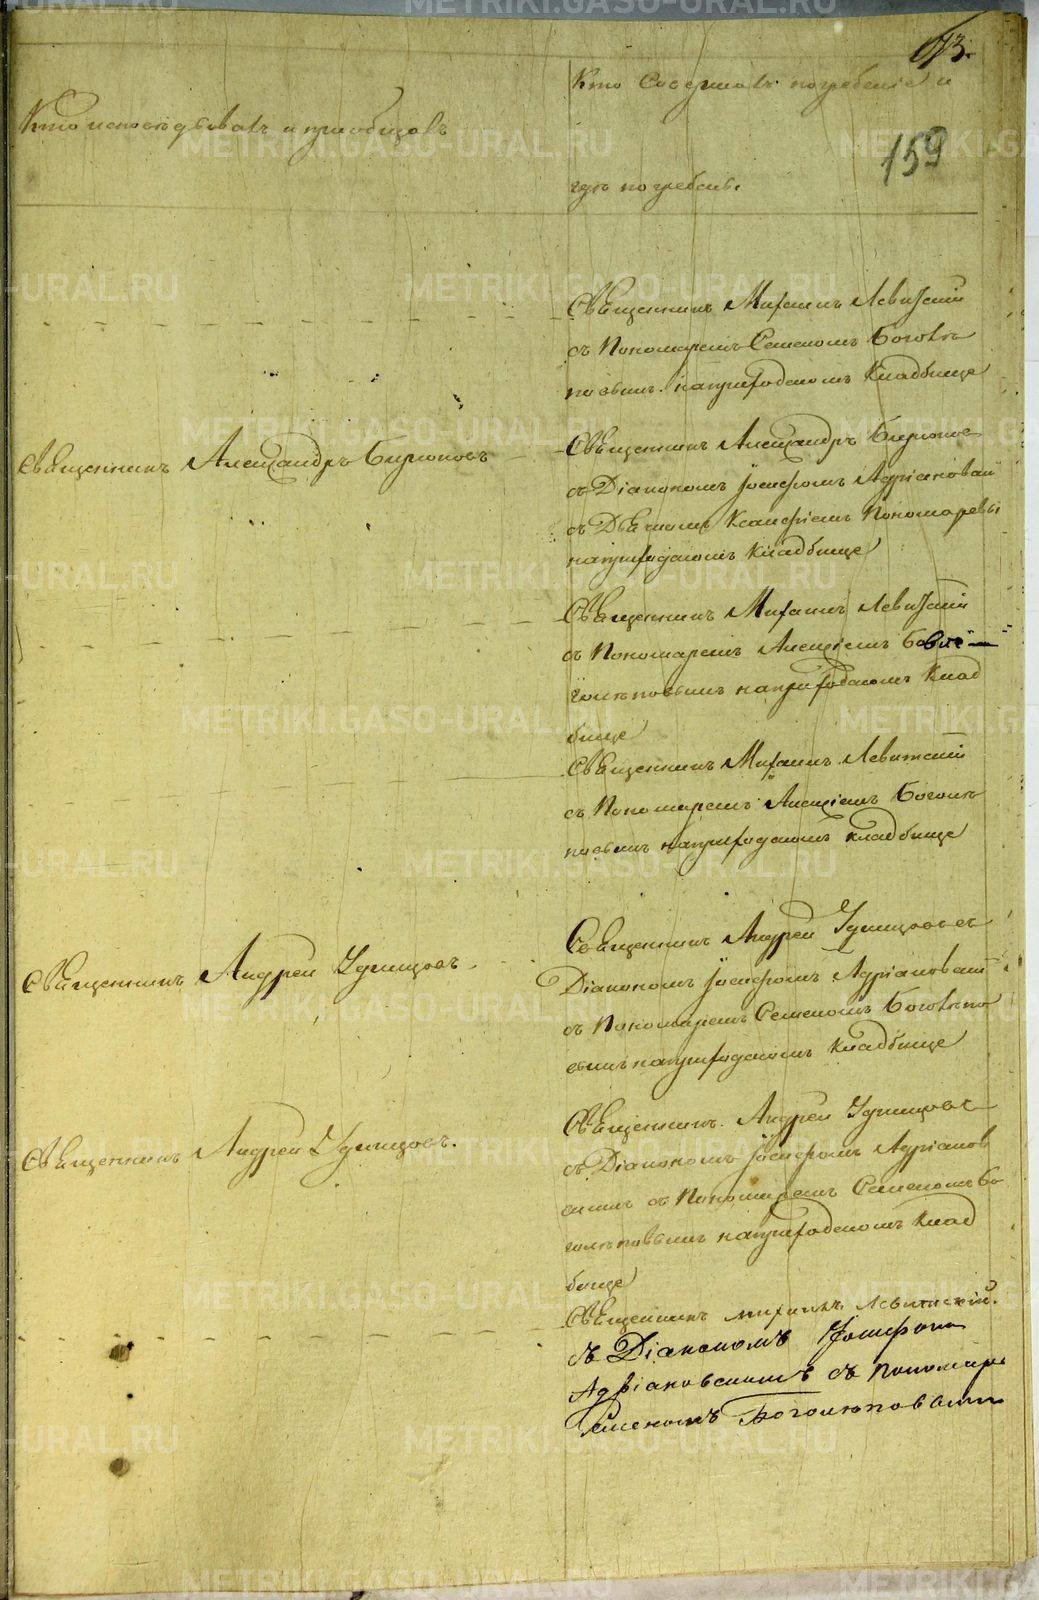 173.
159
Кто исповѣдовалъ и приобщалъ
Кто Совершалъ погребенiе и
гдѣ погребены.
Священникъ Михаилъ Левитскiй
съ Пономаремъ Семеномъ Боголѣ
повымъ на приходскомъ Кладбище
Священникъ Александръ Бирюковъ
Священникъ Александръ Бирюков
съ Дiакономъ Iосифомъ Адрiановски
съ Дьячкомъ Ксенофонтомъ Пономаревы
на приходскомъ Кладбище
Священникъ Михаилъ Левитскiй
съ Пономаремъ Алексiемъ Бо
голѣповымъ на приходскомъ Клад
бище
Священникъ Михаилъ Левитскiй
съ Пономаремъ Алексiемъ Боголѣ
повымъ на приходскомъ Кладбище
Священникъ Андрей Удинцовъ
Священникъ Андрей Удинцовъ съ
Дiакономъ Iосифомъ Адрiановски
съ Пономаремъ Семеномъ Боголѣпо
вымъ на приходскомъ Кладбище
Священникъ Андрей Удинцовъ.
Священникъ Андрей Удинцовъ
съ Дiакономъ Iосифомъ Адрiанов
скимъ съ Пономаремъ Семеномъ Бо
голѣповымъ на приходскомъ Клад
бище
Священникъ Михаилъ Левитскiй.
съ Дiакономъ Iосифомъ
Адрiановскимъ съ Пономаре
Семеномъ Боголюповымъ